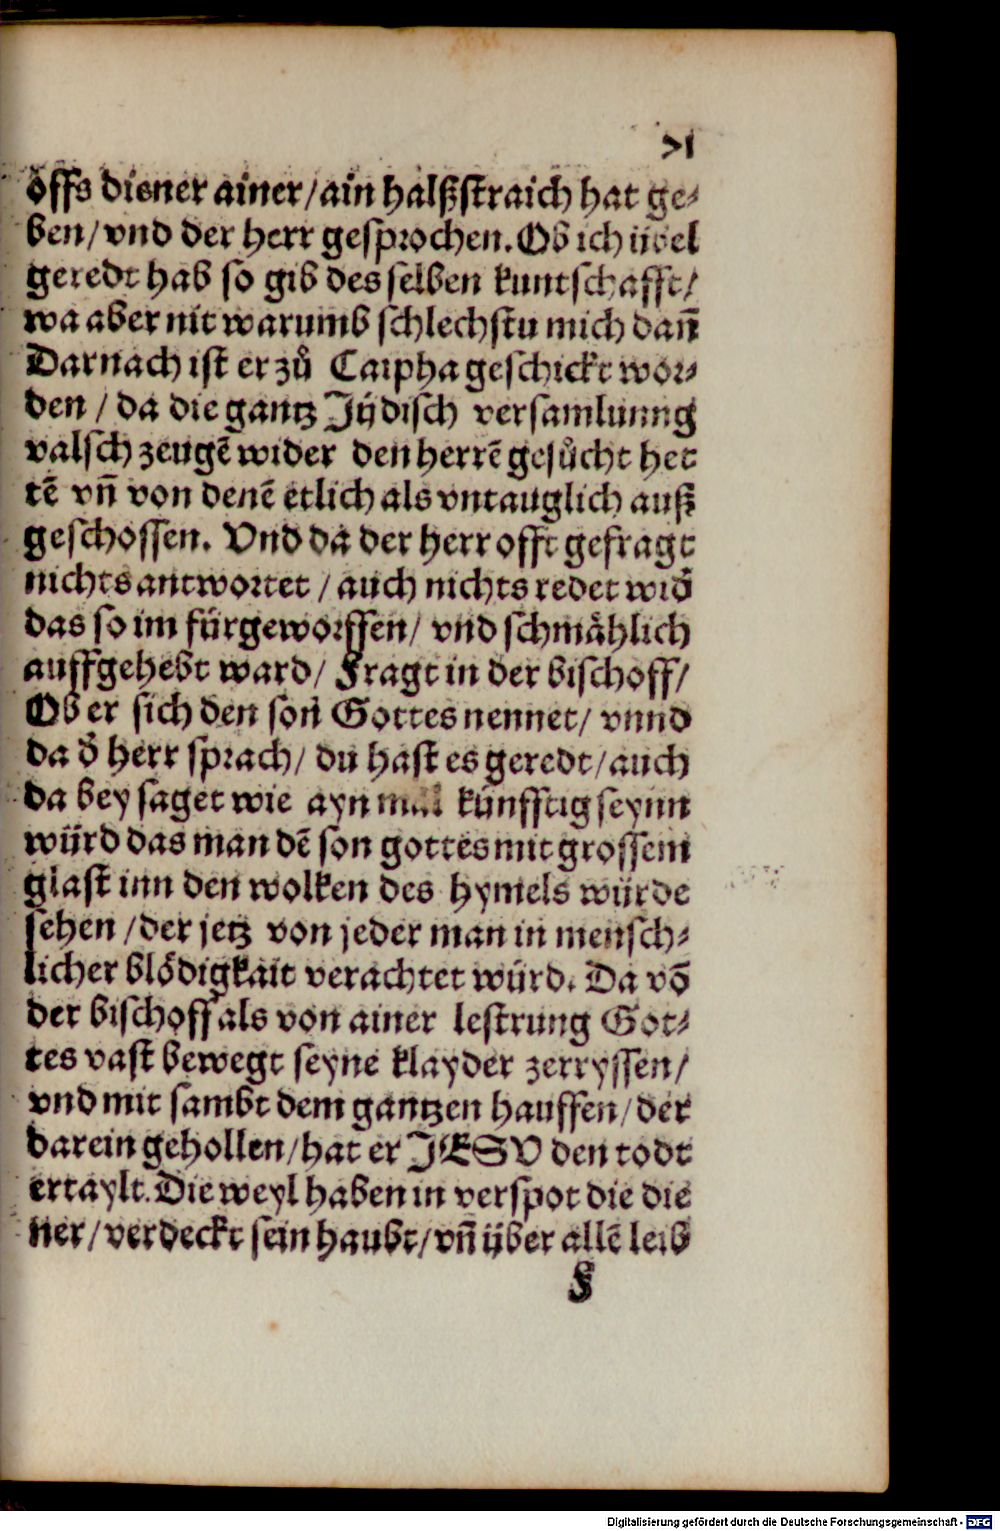 71
öffs diener ainer/ain halßstraich hat ge⸗
ben/vnd der herr gesprochen. Ob ich übel
geredt hab so gib des selben kuntschafft/
wa aber nit warumb schlechstu mich dan̄
Darnach ist er zů Caipha geschickt wor⸗
den / da die gantz Jüdisch versamlunng
valsch zeugē wider den herrē gesůcht het
tē vn̄ von denē etlich als vntauglich auß
geschossen. Vnd da der herr offt gefragt
nichts antwortet / auch nichts redet wid̄
das so im fürgeworffen/ vnd schmählich
auffgehebt ward/ Fragt in der bischoff/
Ob er sich den son Gottes nennet/ vnnd
da d̄ herr sprach/ du hast es geredt/auch
da bey saget wie ayn mal künfftig seynn
würd das man dē son gottes mit grossem
glast inn den wolken des hymels würde
sehen /der jetz von jeder man in mensch⸗
licher blödigkait verachtet würd. Da vō
der bischoff als von ainer lestrung Got⸗
tes vast bewegt seyne klayder zerryssen/
vnd mit sambt dem gantzen hauffen/der
darein gehollen/hat er JESV den todt
ertaylt. Die weyl haben in verspot die die
ner/verdeckt sein haubt/vn̄ über allē leib
F
Digitalisierung gefördert durch die Deutsche Forschungsgemeinschaft - DFG